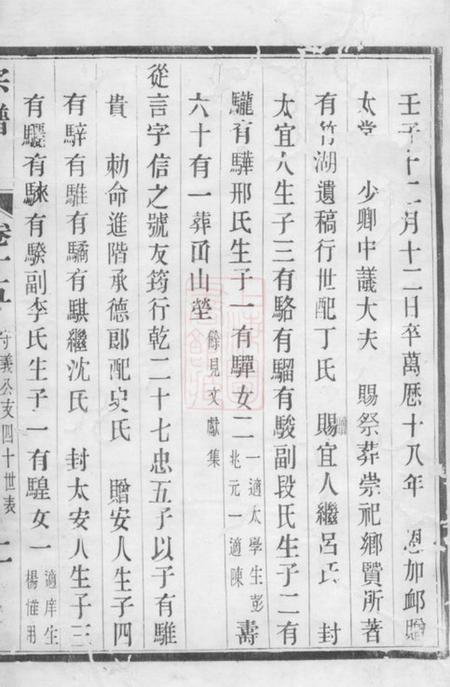 壬子十二月十二日卒萬厯十八年　恩加卹贈
太常　少卿中議大夫　賜祭葬崇祀鄉賢所著
有竹湖遺稿行世配丁氏　贈賜宜人繼呂氏　封
太宜人生子三有駱有騮有駿副段氏生子二有
驡有驊邢氏生子一有驒女二一適太學生彭兆元一適陳壽
六十有一葬而山塋餘見文獻集
從言字信之號友筠行乾二十七忠五子以子有騅
貴　勅命進階承德郎配史氏　贈安人生子四
有騂有騅有驕有騏繼沈氏　封太安人生子三
有驪有騋有騤副李氏生子一有騜女一適庠生楊惟用
宗譜　卷十五　守義公支四十世表